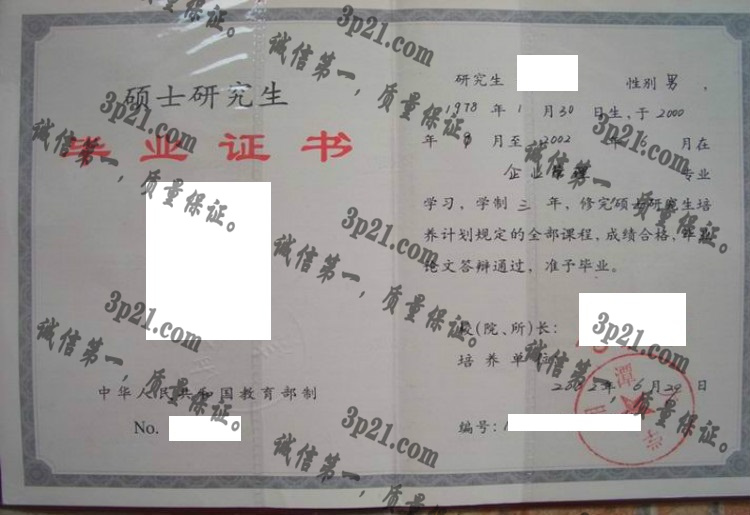 硕士研究生
毕业证书
中华人民共和国教育部制
No.
研究生 性别男，
1978年1月30日生，于2000
年9月至2002年6月在
企业管理 专业
学习，学制三年，修完硕士研究生培
养计划规定的全部课程，成绩合格，毕业
论文答辩通过，准予毕业。
校(院、所)长：
培养单位
2002年6月20日
编号：
3p21.com
诚信第一，质量保证。
3p21.com
诚信第一，质量保证。
3p21.com
诚信第一，质量保证。
3p21.com
诚信第一，质量保证。
3p21.com
诚信第一，质量保证。
3p21.com
诚信第一，质量保证。
3p21.com
诚信第一，质量保证。
3p21.com
诚信第一，质量保证。